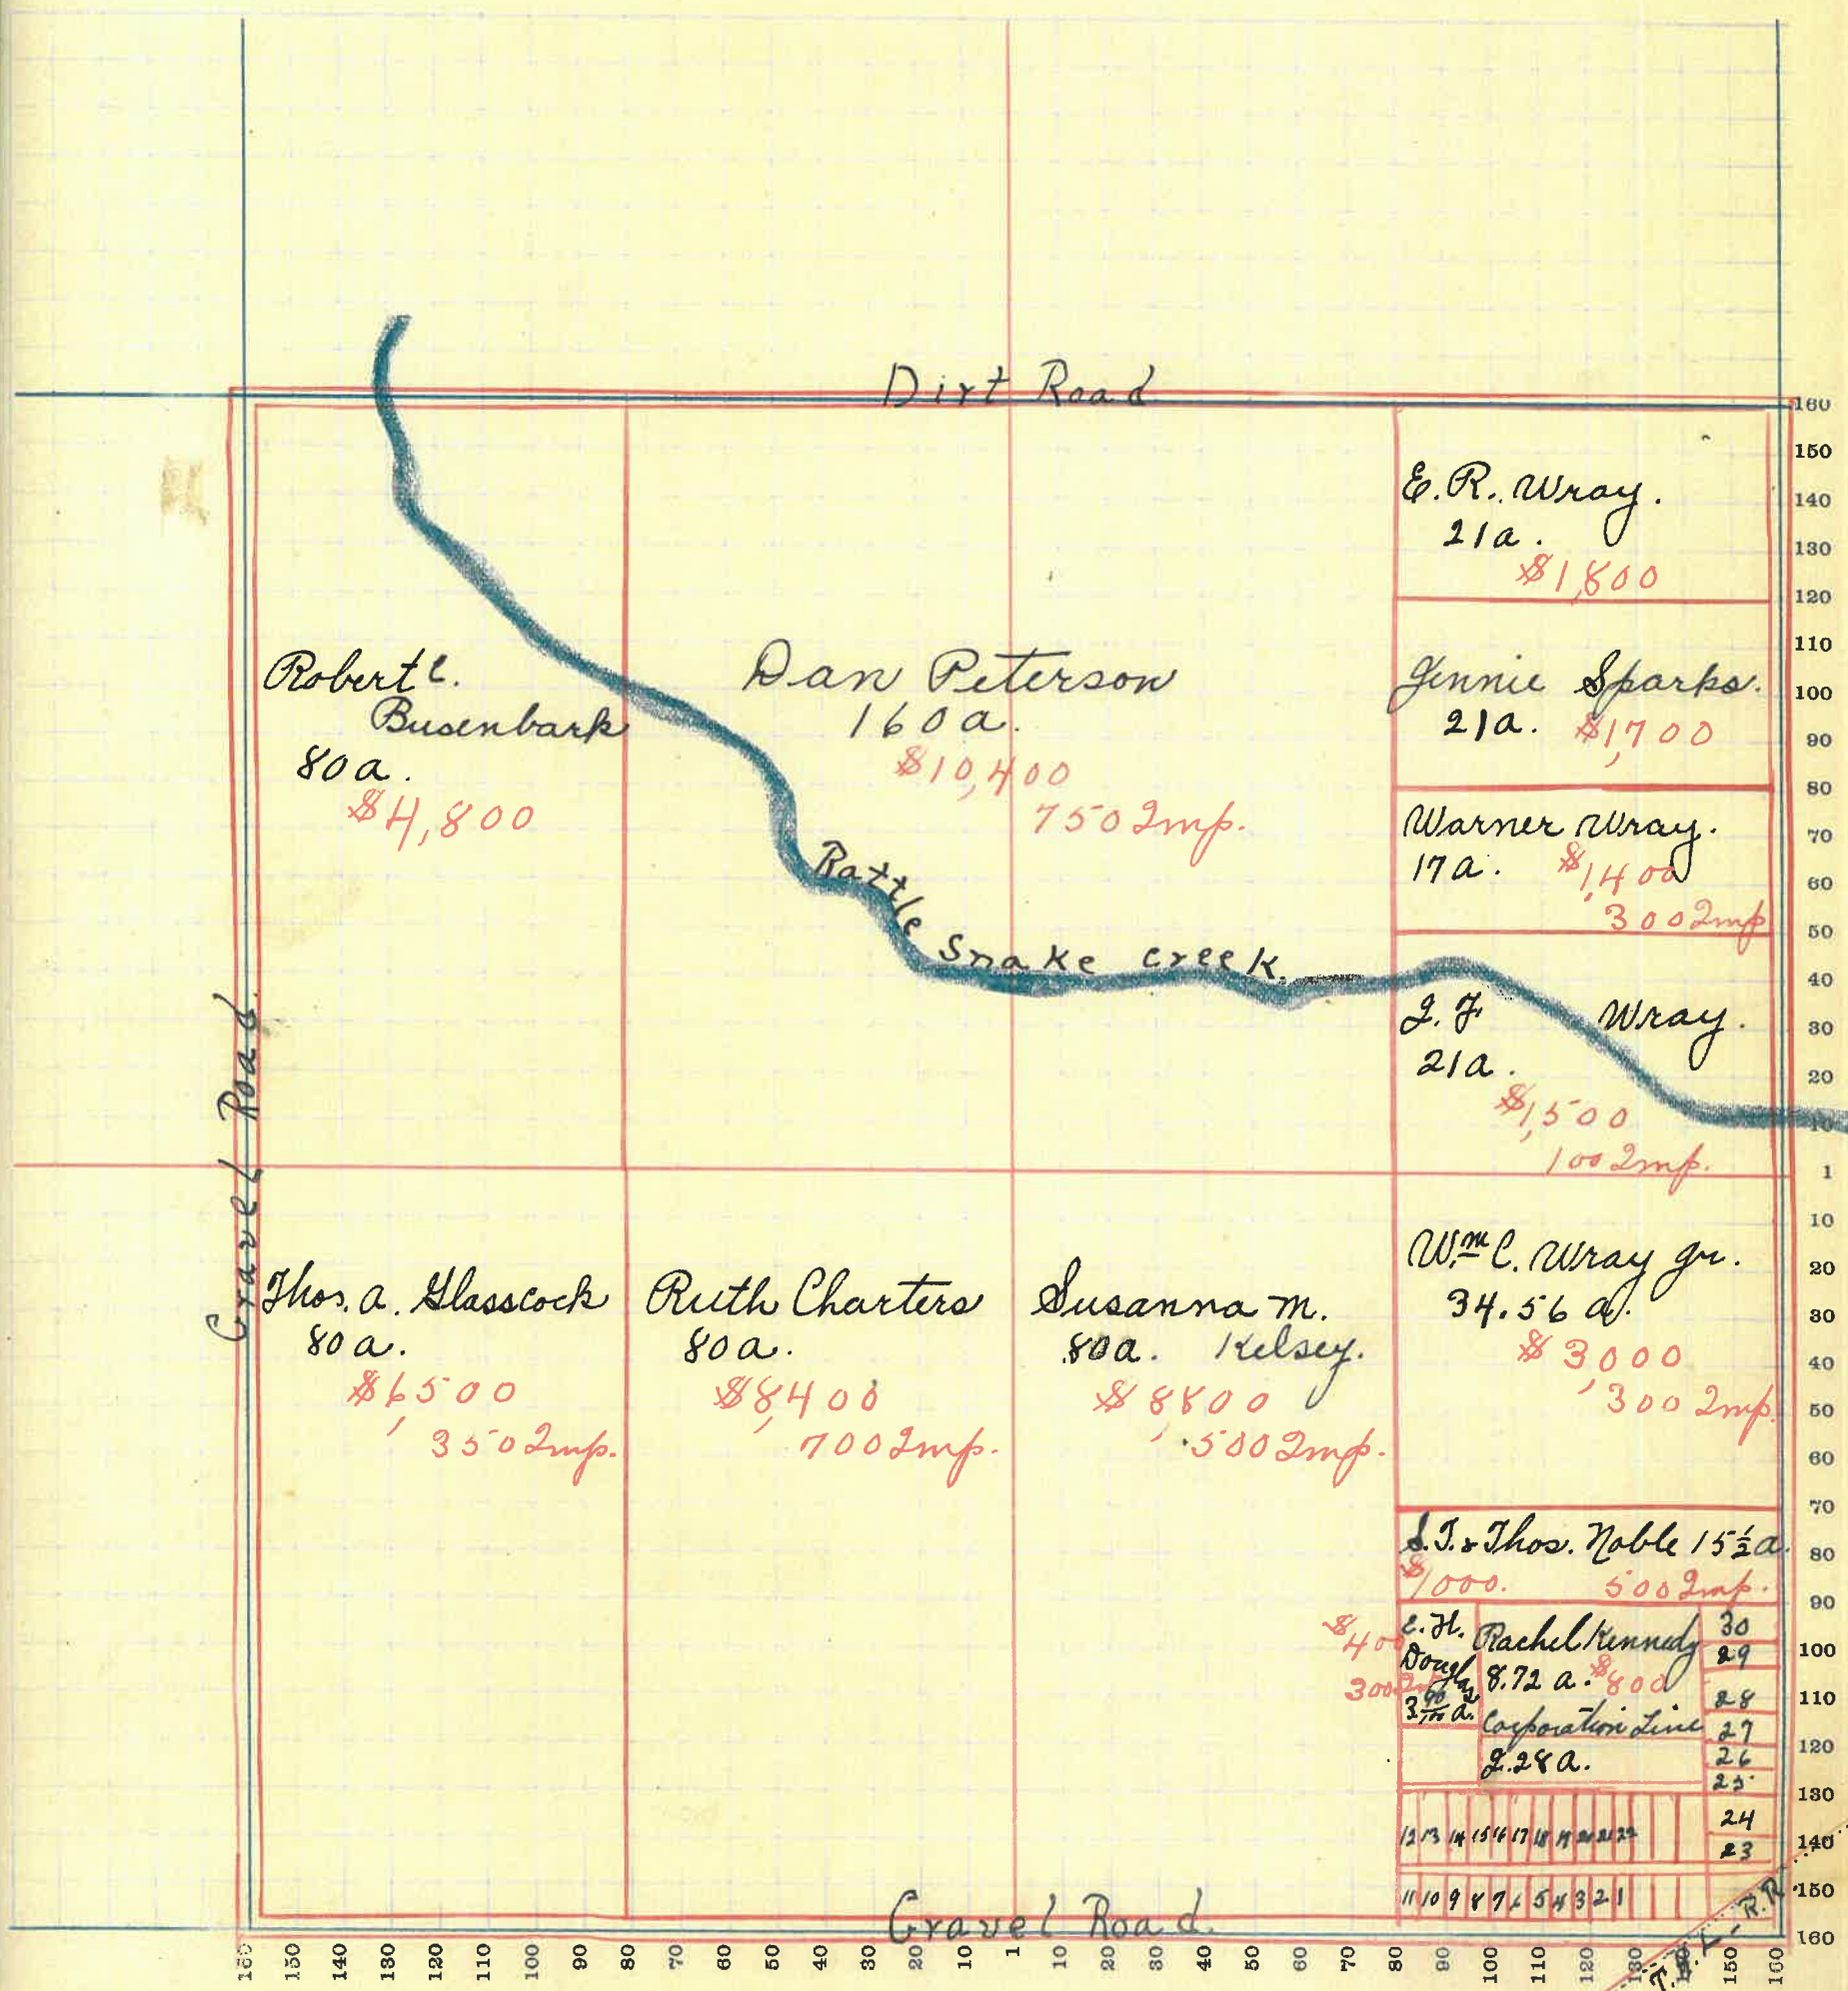 Dirt Road
Robert C.
Busenbark
80 a.
$4,800
Dan Peterson
160 a.
$10,400
750 Imp.
E. R. Wray.
21 a.
$1,800
Jennie Sparks.
21 a. $1,700
Warner Wray.
17 a. $1,400
300 Imp
Rattle Snake Creek.
J. F. Wray.
21 a.
$1,500
100 Imp.
Gravel Road
Thos. A. Glasscock
80 a.
$6,500
350 Imp.
Ruth Charters
80 a.
$8,400
700 Imp.
Susanna M.
80 a. Kelsey.
$8800
500 Imp.
Wm C. Wray Jr.
34.56 a.
$3,000
300 Imp.
S. T. & Thos. Noble 15½ a.
$1000. 500 Imp.
$400
300
E. H.
Douglas
3 90/100 a.
Rachel Kennedy
8.72 a. $800
Corporation Line
2.28 a.
30
29
28
27
26
25
24
23
12 13 14 15 16 17 18 19 20 21 22
11 10 9 8 7 6 5 4 3 2 1
Gravel Road.
R.R.
160
150
140
130
120
110
100
90
80
70
60
50
40
30
20
10
1
10
20
30
40
50
60
70
80
90
100
110
120
130
140
150
160
160 150 140 130 120 110 100 90 80 70 60 50 40 30 20 10 1 10 20 30 40 50 60 70 80 90 100 110 120 130 140 150 160